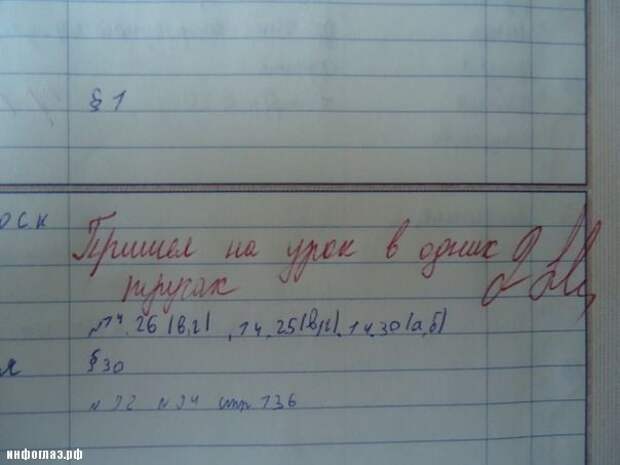 § 1
оск
Пришел на урок в одних
трусах
№14.26(в,г), 14.25(в,г), 14.30(а,б)
§30
№92 №94 стр 136
инфоглаз.рф